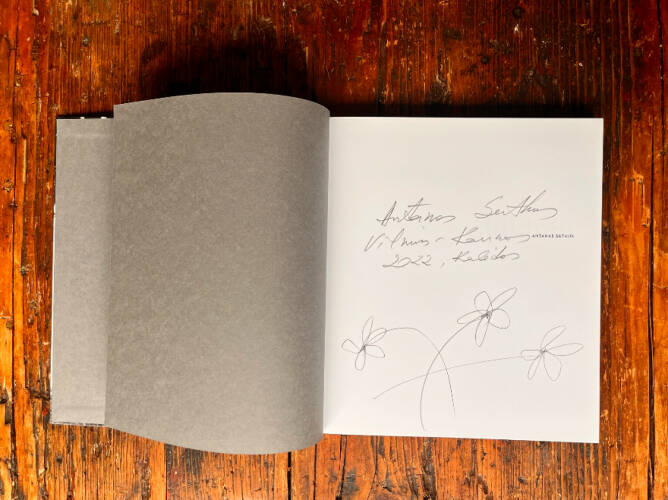 Antanas Sutkus
Vilnius - Kaunas
ANTANAS SUTKUS
2022, Kalėdos